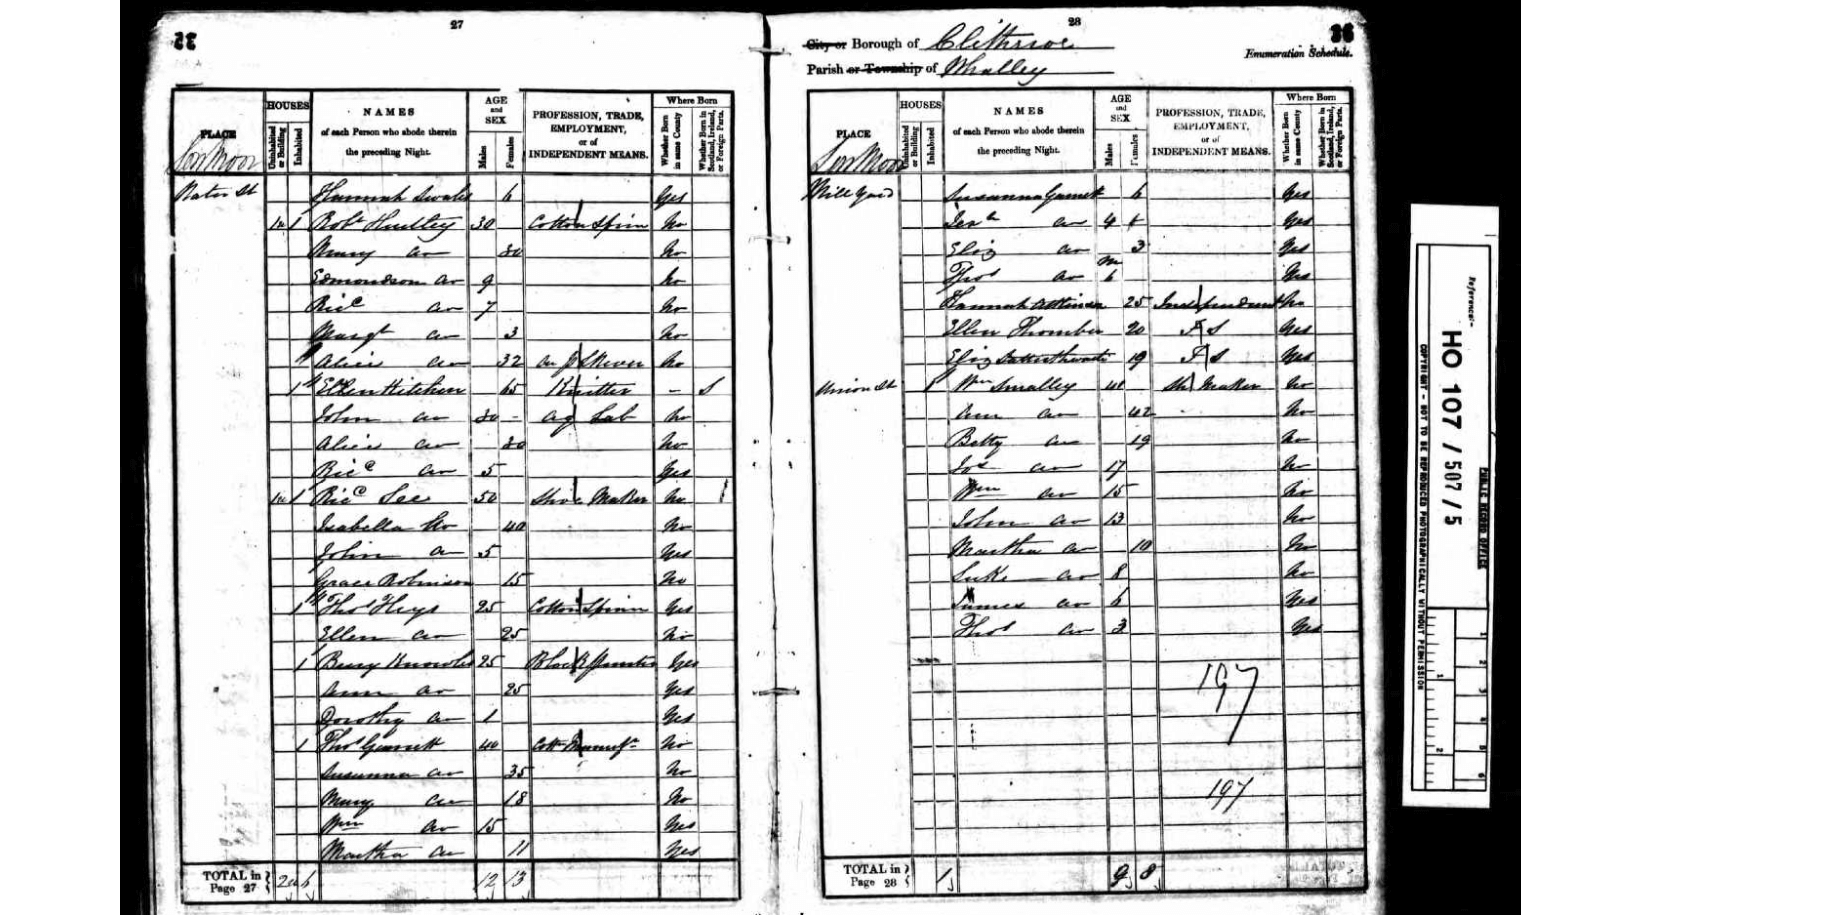 27
35
PLACE
HOUSES
Uninhabited or Building
Inhabited
NAMES
of each Person who abode therein
the preceding Night.
AGE and SEX
Males
Females
PROFESSION, TRADE, EMPLOYMENT, or of INDEPENDENT MEANS.
Where Born
Whether Born in same County
Whether Born in Scotland, Ireland, or Foreign Parts.
Low Moor
Water St Hannah Swales 6 Yes
1 Robt 30 Cotton Spin No
Mary do 30 No
Edmondson do 9 No
Ricd do 7 No
Margt do 3 No
Alice do 32 No
1 Ellen Hitchin 65 Knitter - S
John do 30 - Ag Lab No
Alice do 30 No
Ricd do 5 Yes
1 Ricd Lee 50 Shoe Maker No
Isabella do 40 No
John do 5 Yes
Grace Robinson 15 No
1 Thos Heys 25 Cotton Spinn Yes
Ellen do 25 No
1 Knowles 25 Block Printer Yes
Ann do 25 Yes
Dorothy do 1 Yes
1 Thos Garnett 40 Cott Manufr No
Susanna do 35 No
Mary do 18 No
Wm do 15 Yes
Martha do 11 Yes
TOTAL in Page 27 6 12 13
28
36
City or Borough of Clitheroe
Enumeration Schedule.
Parish or Township of Whalley
PLACE
HOUSES
Uninhabited or Building
Inhabited
NAMES
of each Person who abode therein
the preceding Night.
AGE and SEX
Males
Females
PROFESSION, TRADE, EMPLOYMENT, or of INDEPENDENT MEANS.
Where Born
Whether Born in same County
Whether Born in Scotland, Ireland, or Foreign Parts.
Low Moor
Mill Yard Susanna Garnett 6 Yes
do 4 Yes
Eliz do 3 Yes
Thos do m 6 Yes
Hannah Atkinson 25 Independent No
Ellen Thornber 20 F S Yes
Eliz 19 F S Yes
Union St 1 Wm Smalley 40 Sh Maker No
Ann do 42 No
Betty do 19 No
do 17 No
Wm do 15 No
John do 13 No
Martha do 10 No
Luke do 8 No
James do 6 Yes
Thos do 3 Yes
197
197
TOTAL in Page 28 1 9 8
Reference:-
HO 107 / 507 / 5
PUBLIC RECORD OFFICE
COPYRIGHT - NOT TO BE REPRODUCED PHOTOGRAPHICALLY WITHOUT PERMISSION
1 2 3 4 5 6
1 2